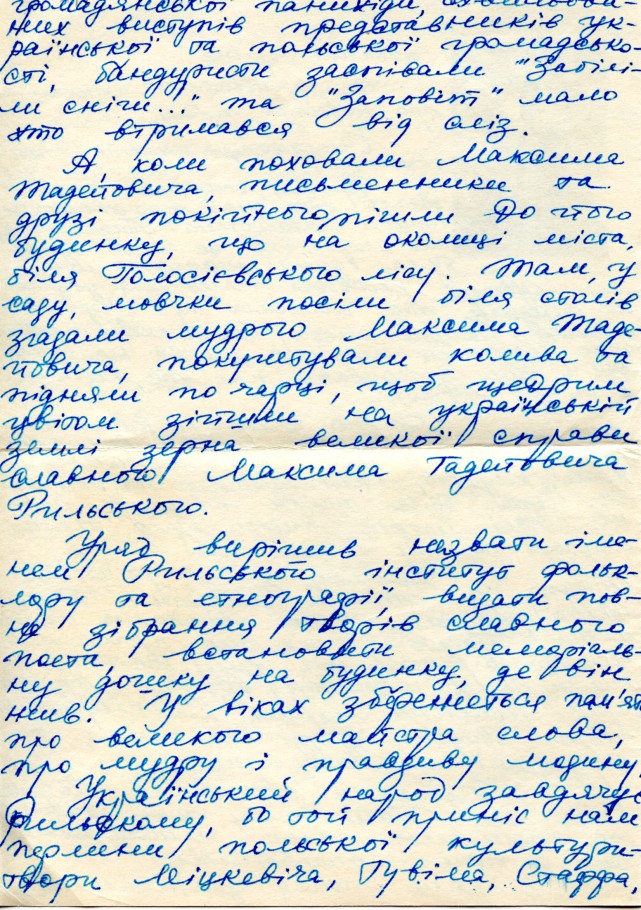 громадянської панихіди,
них виступів представників ук-
раїнської та польської громадсько-
сті, бандуристи заспівали "Забілі-
ли сніги..." та "Заповіт" мало
хто втримався від сліз.
А, коли поховали Максима
Тадейовича, письменники та
друзі покійного, пішли до його
будинку, що на околиці міста,
біля Голосієвського лісу. Там, у
саду, мовчки посіли біля столів
згадали мудрого Максима Таде-
йовича, покуштували колива та
підняли по чарці, щоб щедрим
цвітом зійшли на українській
землі зерна великої справи
славного Максима Тадейовича
Рильського.
Уряд вирішив назвати іме-
нем Рильського інститут фольк-
лору та етнографії, видати пов-
не зібрання творів славного
поета, встановити меморіаль-
ну дошку на будинку, де він
жив. У віках збережеться пам'ять
про великого майстра слова,
про мудру і правдиву людину
Український народ завдячує
Рильському, бо той приніс нам
перлини польської культури-
твори Міцкевіча, Тувіма, Стаффа,